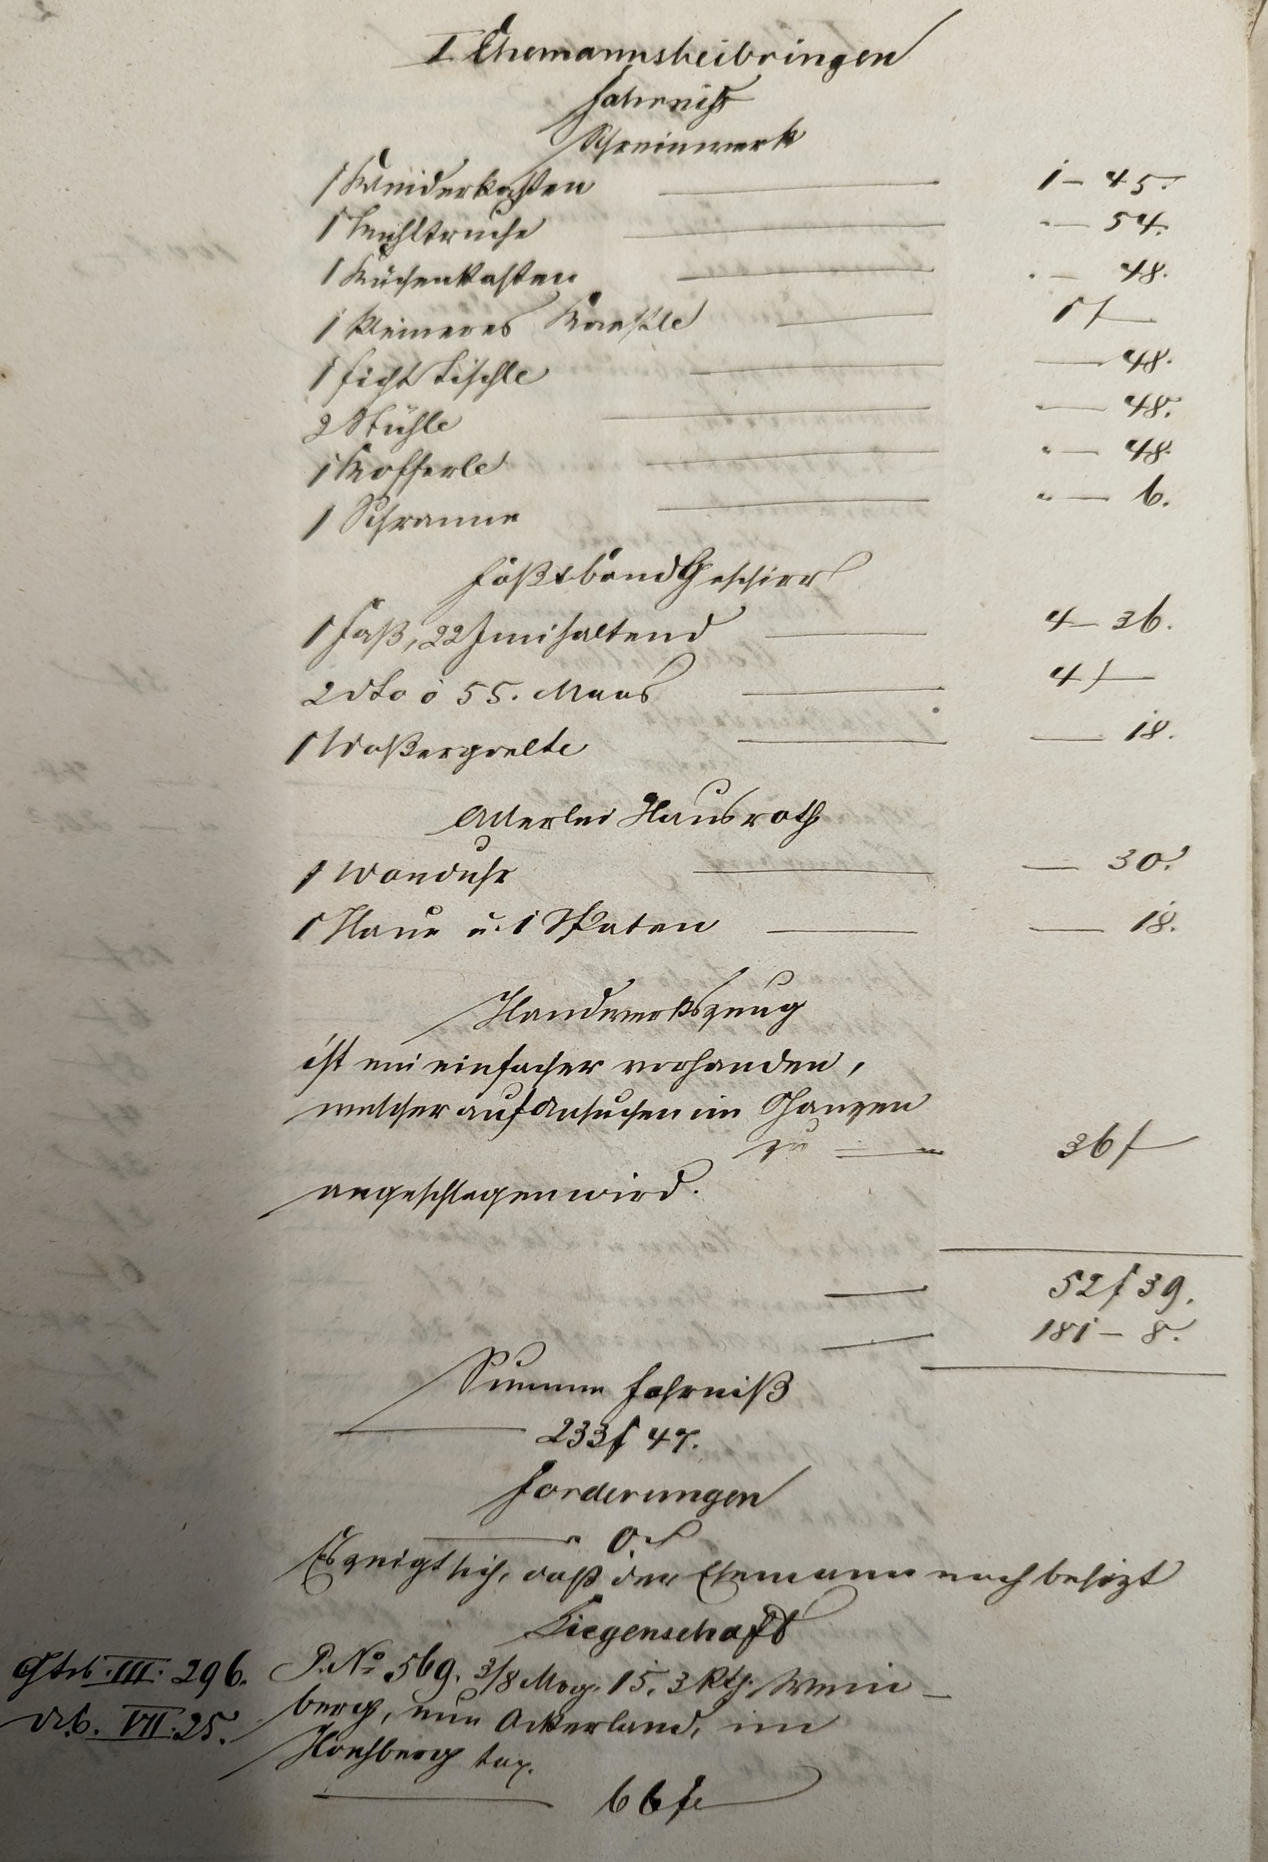 I Ehemannsbeibringen
Fahrniß
Schreinwerk
1 Kleiderkasten — 1 – 45.
1 Mehltruche " — 54.
1 Küchenkasten " — 48.
1 kleineres Kästle 1 f —
1 ficht Tischle — 48.
2 Stühle " — 48.
1 Kofferle " — 48.
1 Schranne " — 6.
Faß & Band Geschirr
1 Faß, 22 Imi haltend 4 – 36.
2 dto à 55. Maas 4 f —
1 Waßergelte — 18.
Allerlei Hausrath
1 Wanduhr — 30.
1 Haue u. 1 Spaten — 18.
Handwerkszeug
ist ein einfacher vorhanden,
welcher auf Ansuchen im Ganzen
zu = 36 f —
angeschlagen wird.
— 52 f 39.
— 181 – 8.
Summe Fahrniß
— 233 f 47.
Forderungen
— " O. f
Es zeigt sich, daß der Ehemann noch besizt
Liegenschaft
Gtrb. III. 296. P. No 569. 3/8 Mrg. 15, 3 Rth. Wein-
Urb. VII. 25. berg, nun Ackerland, im
Horchberg tax.
— 66 f